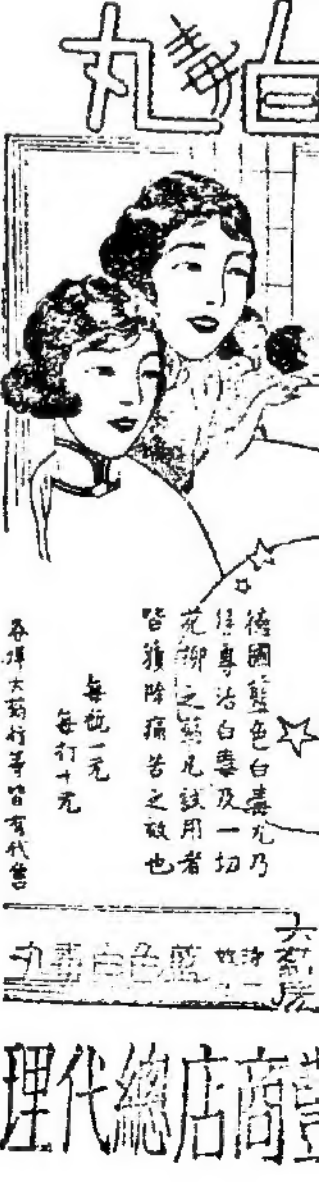 白毒丸
德國藍色白毒丸乃
係專治白毒及一切
花柳之藥凡試用者
皆獲除痛苦之效也
每瓶一元
每打十元
各埠大藥行等皆有代售
大藥房
藍色白毒丸
商店總代理